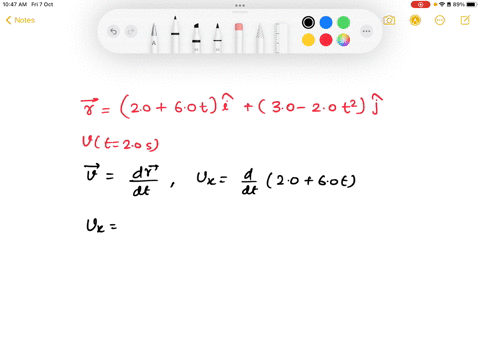 10:47 AM Fri 7 Oct
89%
Notes
A
r⃗ = (2.0 + 6.0t) î + (3.0 - 2.0 t²) ĵ
v(t=2.0 s)
v⃗ = dr⃗/dt , vₓ = d/dt (2.0 + 6.0t)
vₓ =